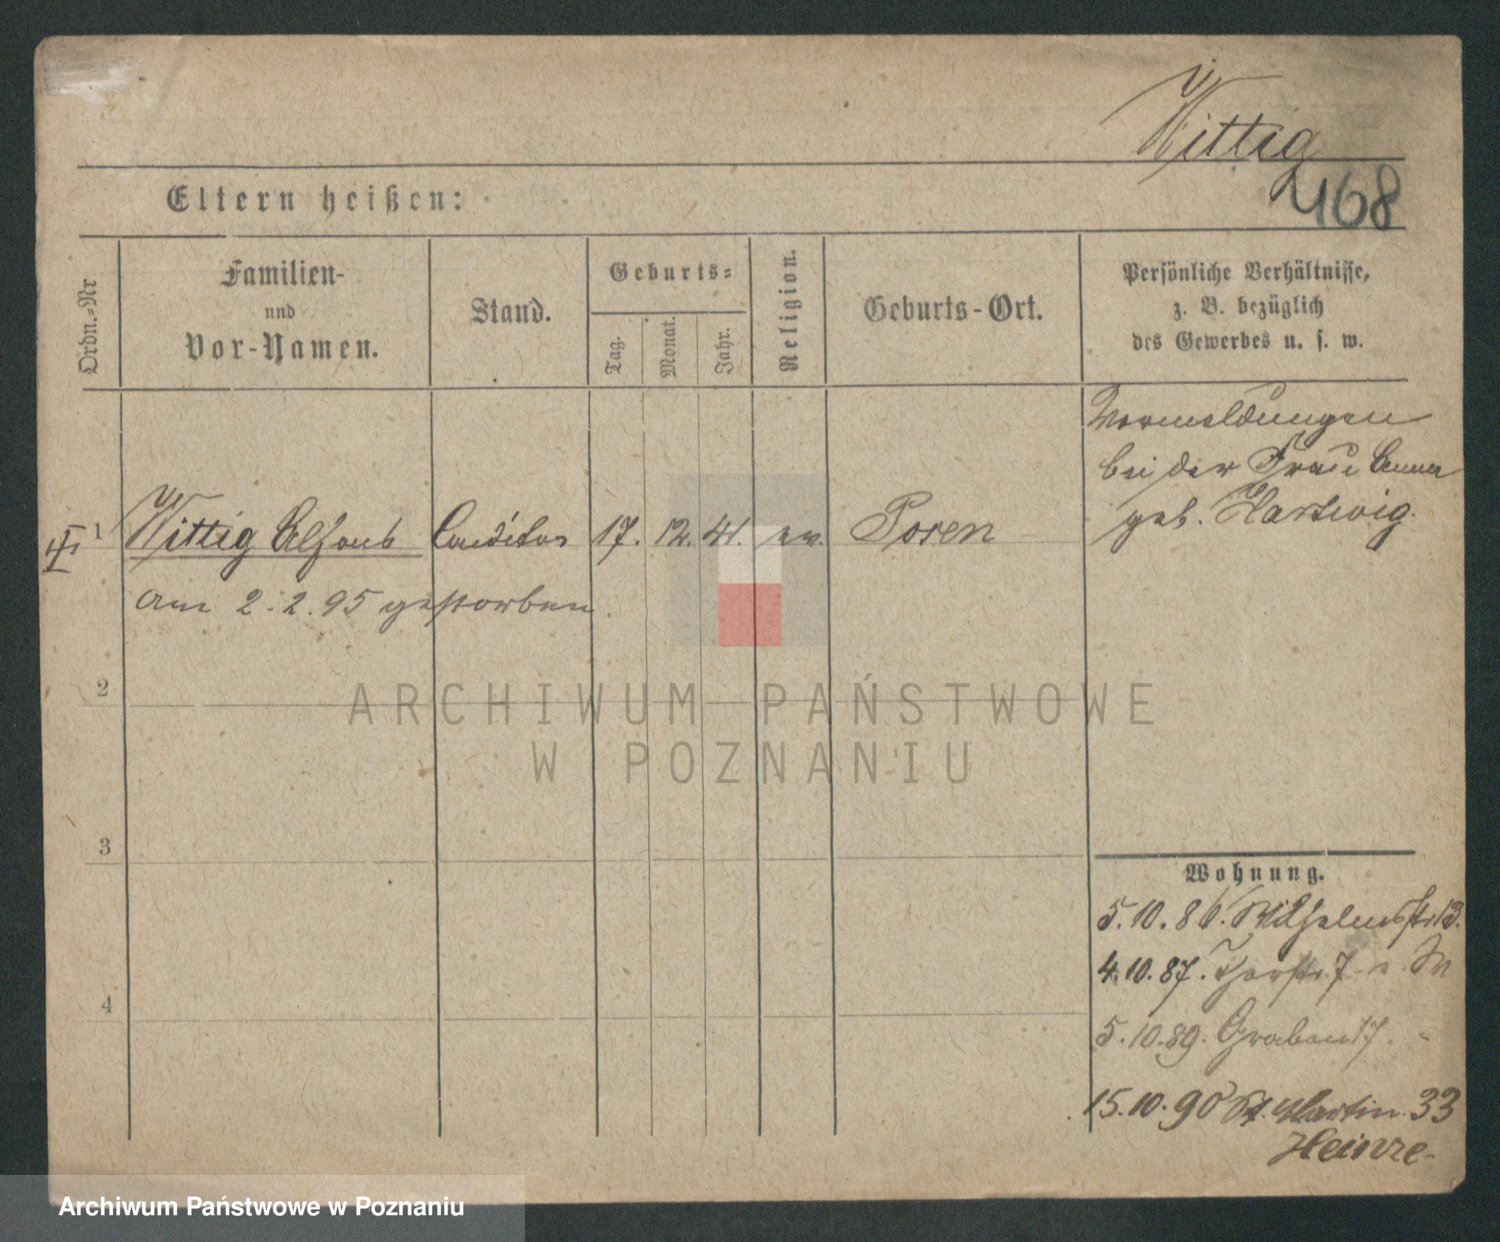 Wittig
468
Eltern heißen:
Ordn.-Nr
Familien-
und
Vor-Namen.
Stand.
Geburts-
Tag.
Monat.
Jahr.
Religion.
Geburts-Ort.
Persönliche Verhältnisse,
z. B. bezüglich
des Gewerbes u. s. w.
Vormeldungen
bei der Frau Anna
geb. Hartwig.
1 Wittig Alfons Conditor 17. 12. 41. ev. Posen
am 2.2.95 gestorben.
2
3
4
ARCHIWUM PAŃSTWOWE
W POZNANIU
Wohnung.
5.10.86. Wilhelmsstr 13.
4.10.87. Thorstr. 7
5.10.89. Graben 17.
15.10.90 St. Martin. 33
Heinze
Archiwum Państwowe w Poznaniu